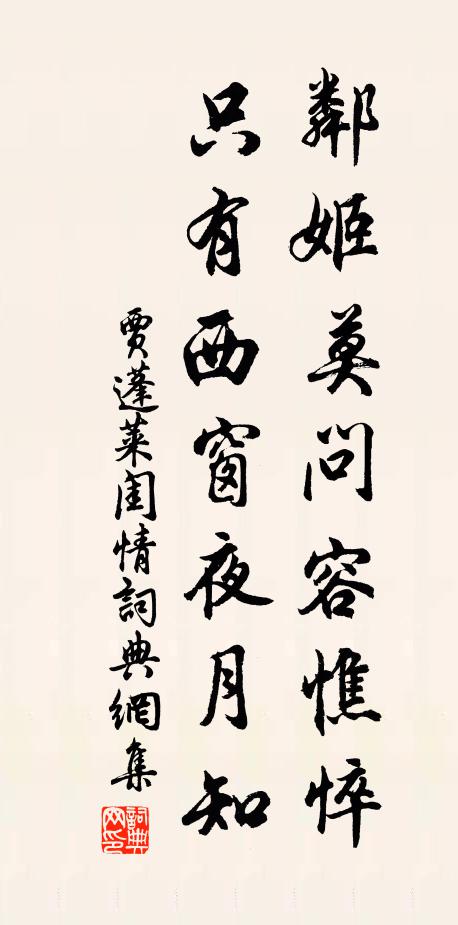 鄰姬莫問容憔悴
只有西窗夜月知
賈蓬萊閨情詞典網集
詞典網印